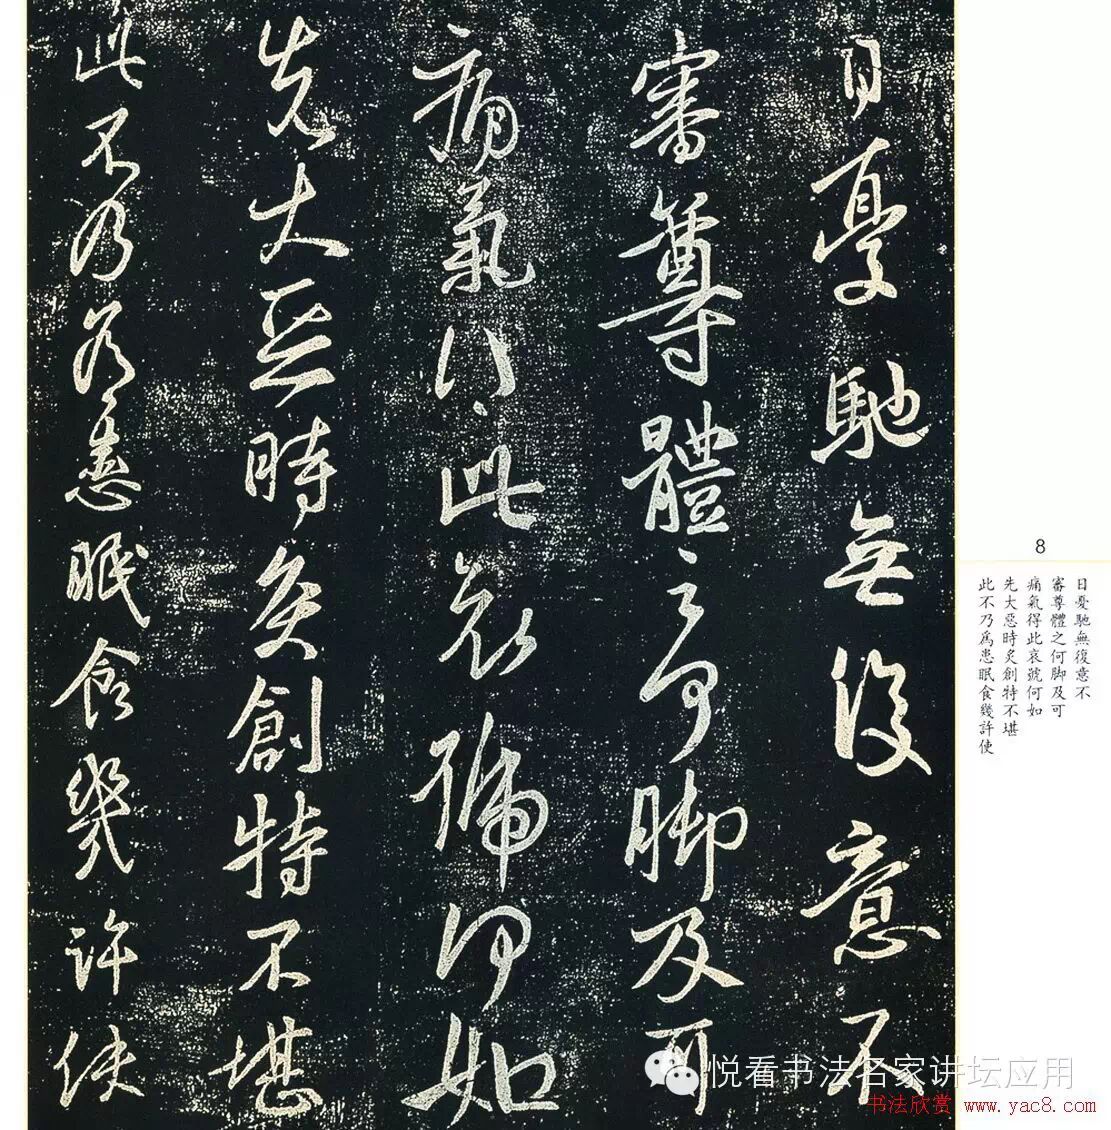 日憂馳無復意不
審尊體之何脚及可
痛氣得此哀號何如
先大惡時炙創特不堪
此不乃為患眠食幾許使
8
日憂馳無復意不
審尊體之何脚及可
痛氣得此哀號何如
先大惡時炙創特不堪
此不乃爲患眠食幾許使
悦看书法名家讲坛应用
书法欣赏 www.yac8.com